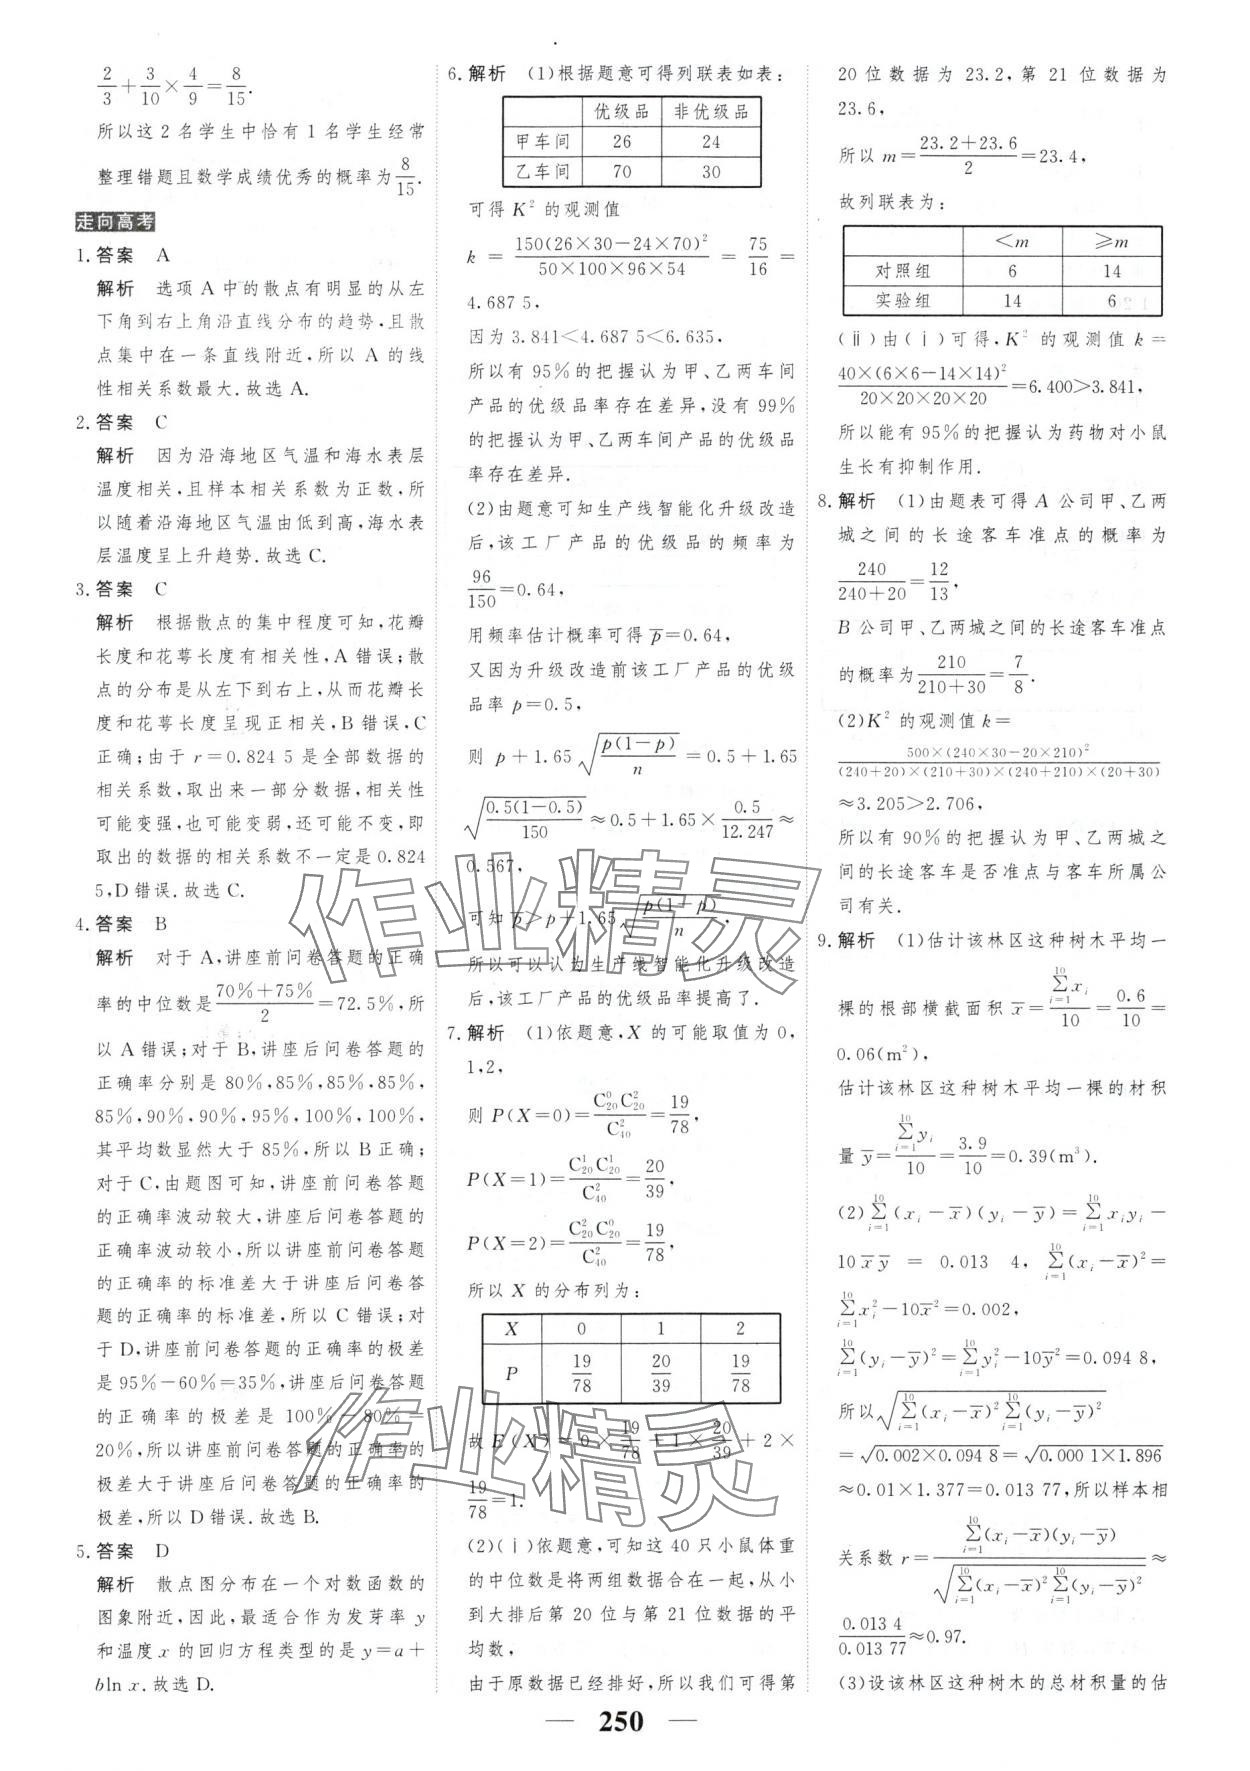 2/3+3/10×4/9=8/15.
所以这2名学生中恰有1名学生经常
整理错题且数学成绩优秀的概率为8/15.
走向高考
1.答案 A
解析 选项A中的散点有明显的从左
下角到右上角沿直线分布的趋势,且散
点集中在一条直线附近,所以A的线
性相关系数最大.故选A.
2.答案 C
解析 因为沿海地区气温和海水表层
温度相关,且样本相关系数为正数,所
以随着沿海地区气温由低到高,海水表
层温度呈上升趋势.故选C.
3.答案 C
解析 根据散点的集中程度可知,花瓣
长度和花萼长度有相关性,A错误;散
点的分布是从左下到右上,从而花瓣长
度和花萼长度呈现正相关,B错误,C
正确;由于r=0.824 5是全部数据的
相关系数,取出来一部分数据,相关性
可能变强,也可能变弱,还可能不变,即
取出的数据的相关系数不一定是0.824
5,D错误.故选C.
4.答案 B
解析 对于A,讲座前问卷答题的正确
率的中位数是(70%+75%)/2=72.5%,所
以A错误;对于B,讲座后问卷答题的
正确率分别是80%,85%,85%,85%,
85%,90%,90%,95%,100%,100%,
其平均数显然大于85%,所以B正确;
对于C,由题图可知,讲座前问卷答题
的正确率波动较大,讲座后问卷答题的
正确率波动较小,所以讲座前问卷答题
的正确率的标准差大于讲座后问卷答
题的正确率的标准差,所以C错误;对
于D,讲座前问卷答题的正确率的极差
是95%-60%=35%,讲座后问卷答题
的正确率的极差是100%-80%=
20%,所以讲座前问卷答题的正确率的
极差大于讲座后问卷答题的正确率的
极差,所以D错误.故选B.
5.答案 D
解析 散点图分布在一个对数函数的
图象附近,因此,最适合作为发芽率y
和温度x的回归方程类型的是y=a+
bln x.故选D.
6.解析 (1)根据题意可得列联表如表:
优级品 非优级品
甲车间 26 24
乙车间 70 30
可得K²的观测值
k=150(26×30-24×70)²/(50×100×96×54)=75/16=
4.687 5,
因为3.841<4.687 5<6.635,
所以有95%的把握认为甲、乙两车间
产品的优级品率存在差异,没有99%
的把握认为甲、乙两车间产品的优级品
率存在差异.
(2)由题意可知生产线智能化升级改造
后,该工厂产品的优级品的频率为
96/150=0.64,
用频率估计概率可得p̄=0.64,
又因为升级改造前该工厂产品的优级
品率p=0.5,
则p+1.65√(p(1-p)/n)=0.5+1.65
√(0.5(1-0.5)/150)≈0.5+1.65×0.5/12.247≈
0.567,
可知p̄>p+1.65√(p(1-p)/n),
所以可以认为生产线智能化升级改造
后,该工厂产品的优级品率提高了.
7.解析 (1)依题意,X的可能取值为0,
1,2,
则P(X=0)=C⁰₂₀C²₂₀/C²₄₀=19/78,
P(X=1)=C¹₂₀C¹₂₀/C²₄₀=20/39,
P(X=2)=C²₂₀C⁰₂₀/C²₄₀=19/78,
所以X的分布列为:
X 0 1 2
P 19/78 20/39 19/78
故E(X)=0×19/78+1×20/39+2×
19/78=1.
(2)(ⅰ)依题意,可知这40只小鼠体重
的中位数是将两组数据合在一起,从小
到大排后第20位与第21位数据的平
均数,
由于原数据已经排好,所以我们可得第
20位数据为23.2,第21位数据为
23.6,
所以m=(23.2+23.6)/2=23.4,
故列联表为:
<m ≥m
对照组 6 14
实验组 14 6
(ⅱ)由(ⅰ)可得,K²的观测值k=
40×(6×6-14×14)²/(20×20×20×20)=6.400>3.841,
所以能有95%的把握认为药物对小鼠
生长有抑制作用.
8.解析 (1)由题表可得A公司甲、乙两
城之间的长途客车准点的概率为
240/(240+20)=12/13,
B公司甲、乙两城之间的长途客车准点
的概率为210/(210+30)=7/8.
(2)K²的观测值k=
500×(240×30-20×210)²/((240+20)×(210+30)×(240+210)×(20+30))
≈3.205>2.706,
所以有90%的把握认为甲、乙两城之
间的长途客车是否准点与客车所属公
司有关.
9.解析 (1)估计该林区这种树木平均一
棵的根部横截面积x̄=∑(i=1→10)xᵢ/10=0.6/10=
0.06(m²),
估计该林区这种树木平均一棵的材积
量ȳ=∑(i=1→10)yᵢ/10=3.9/10=0.39(m³).
(2)∑(i=1→10)(xᵢ-x̄)(yᵢ-ȳ)=∑(i=1→10)xᵢyᵢ-
10x̄ȳ=0.013 4,∑(i=1→10)(xᵢ-x̄)²=
∑(i=1→10)xᵢ²-10x̄²=0.002,
∑(i=1→10)(yᵢ-ȳ)²=∑(i=1→10)yᵢ²-10ȳ²=0.094 8,
所以√(∑(i=1→10)(xᵢ-x̄)²∑(i=1→10)(yᵢ-ȳ)²)
=√(0.002×0.094 8)=√(0.000 1×1.896)
≈0.01×1.377=0.013 77,所以样本相
关系数r=∑(i=1→10)(xᵢ-x̄)(yᵢ-ȳ)/√(∑(i=1→10)(xᵢ-x̄)²∑(i=1→10)(yᵢ-ȳ)²)≈
0.013 4/0.013 77≈0.97.
(3)设该林区这种树木的总材积量的估
— 250 —
作业精灵
作业精灵